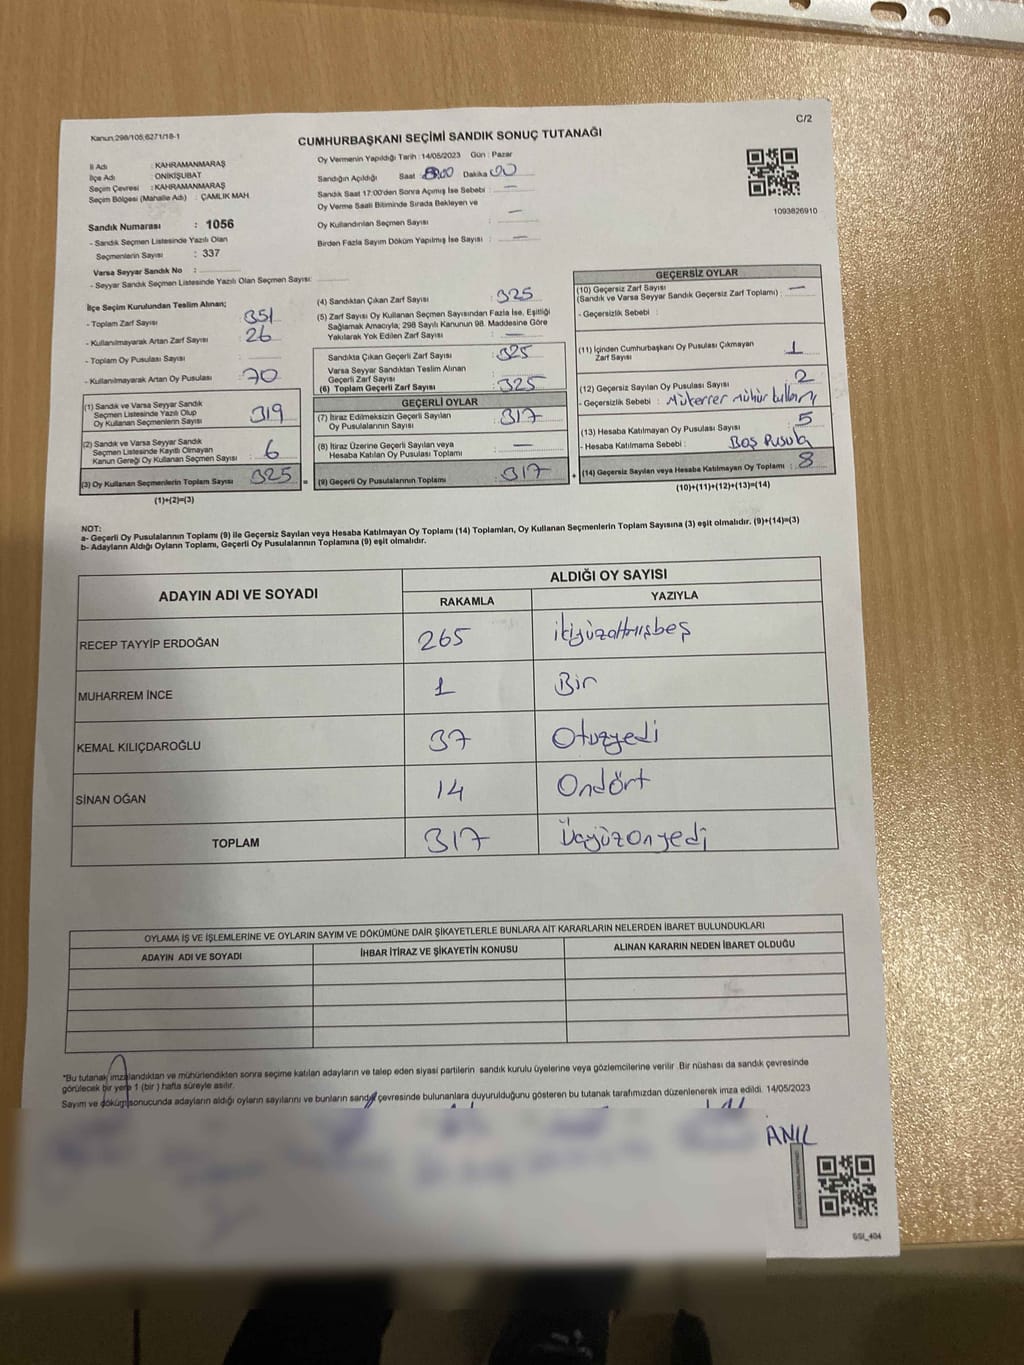 C/2
Kanun;298/105;6271/18-1
CUMHURBAŞKANI SEÇİMİ SANDIK SONUÇ TUTANAĞI
İl Adı : KAHRAMANMARAŞ
İlçe Adı : ONİKİŞUBAT
Seçim Çevresi : KAHRAMANMARAŞ
Seçim Bölgesi (Mahalle Adı) : ÇAMLIK MAH
Sandık Numarası : 1056
- Sandık Seçmen Listesinde Yazılı Olan
Seçmenlerin Sayısı : 337
Varsa Seyyar Sandık No :
- Seyyar Sandık Seçmen Listesinde Yazılı Olan Seçmen Sayısı:
Oy Vermenin Yapıldığı Tarih : 14/05/2023 Gün : Pazar
Sandığın Açıldığı Saat : Dakika 00
Sandık Saat 17:00'den Sonra Açılmış İse Sebebi : —
Oy Verme Saati Bitiminde Sırada Bekleyen ve
Oy Kullandırılan Seçmen Sayısı : —
Birden Fazla Sayım Döküm Yapılmış İse Sayısı : —
1093826910
İlçe Seçim Kurulundan Teslim Alınan;
- Toplam Zarf Sayısı : 351
- Kullanılmayarak Artan Zarf Sayısı : 26
- Toplam Oy Pusulası Sayısı :
- Kullanılmayarak Artan Oy Pusulası : 70
(1) Sandık ve Varsa Seyyar Sandık
Seçmen Listesinde Yazılı Olup
Oy Kullanan Seçmenlerin Sayısı : 319
(2) Sandık ve Varsa Seyyar Sandık
Seçmen Listesinde Kayıtlı Olmayan
Kanun Gereği Oy Kullanan Seçmen Sayısı : 6
(3) Oy Kullanan Seçmenlerin Toplam Sayısı : 325
(1)+(2)=(3)
(4) Sandıktan Çıkan Zarf Sayısı : 325
(5) Zarf Sayısı Oy Kullanan Seçmen Sayısından Fazla İse, Eşitliği
Sağlamak Amacıyla; 298 Sayılı Kanunun 98. Maddesine Göre
Yakılarak Yok Edilen Zarf Sayısı : —
Sandıkta Çıkan Geçerli Zarf Sayısı : 325
Varsa Seyyar Sandıktan Teslim Alınan
Geçerli Zarf Sayısı :
(6) Toplam Geçerli Zarf Sayısı : 325
GEÇERLİ OYLAR
(7) İtiraz Edilmeksizin Geçerli Sayılan
Oy Pusulasının Sayısı : 317
(8) İtiraz Üzerine Geçerli Sayılan veya
Hesaba Katılan Oy Pusulası Toplamı : —
= (9) Geçerli Oy Pusulalarının Toplamı : 317
GEÇERSİZ OYLAR
(10) Geçersiz Zarf Sayısı
(Sandık ve Varsa Seyyar Sandık Geçersiz Zarf Toplamı) : —
- Geçersizlik Sebebi :
(11) İçinden Cumhurbaşkanı Oy Pusulası Çıkmayan
Zarf Sayısı : 1
(12) Geçersiz Sayılan Oy Pusulası Sayısı : 2
- Geçersizlik Sebebi : Mükerrer mühür
(13) Hesaba Katılmayan Oy Pusulası Sayısı : 5
- Hesaba Katılmama Sebebi : Boş Pusula
+ (14) Geçersiz Sayılan veya Hesaba Katılmayan Oy Toplamı : 8
(10)+(11)+(12)+(13)=(14)
NOT:
a- Geçerli Oy Pusulasının Toplamı (9) ile Geçersiz Sayılan veya Hesaba Katılmayan Oy Toplamı (14) Toplamları, Oy Kullanan Seçmenlerin Toplam Sayısına (3) eşit olmalıdır. (9)+(14)=(3)
b- Adayların Aldığı Oyların Toplamı, Geçerli Oy Pusulalarının Toplamına (9) eşit olmalıdır.
ADAYIN ADI VE SOYADI
ALDIĞI OY SAYISI
RAKAMLA YAZIYLA
RECEP TAYYİP ERDOĞAN 265 ikiyüzaltmışbeş
MUHARREM İNCE 1 Bir
KEMAL KILIÇDAROĞLU 37 Otuzyedi
SİNAN OĞAN 14 Ondört
TOPLAM 317 Üçyüzonyedi
OYLAMA İŞ VE İŞLEMLERİNE VE OYLARIN SAYIM VE DÖKÜMÜNE DAİR ŞİKAYETLERLE BUNLARA AİT KARARLARIN NELERDEN İBARET BULUNDUKLARI
ADAYIN ADI VE SOYADI İHBAR İTİRAZ VE ŞİKAYETİN KONUSU ALINAN KARARIN NEDEN İBARET OLDUĞU
*Bu tutanak imzalandıktan ve mühürlendikten sonra seçime katılan adayların ve talep eden siyasi partilerin sandık kurulu üyelerine veya gözlemcilerine verilir. Bir nüshası da sandık çevresinde
görülecek bir yere 1 (bir) hafta süreyle asılır.
Sayım ve döküm sonucunda adayların aldığı oyların sayılarını ve bunların sandık çevresinde bulunanlara duyurulduğunu gösteren bu tutanak tarafımızdan düzenlenerek imza edildi. 14/05/2023
ANIL
SSI_404